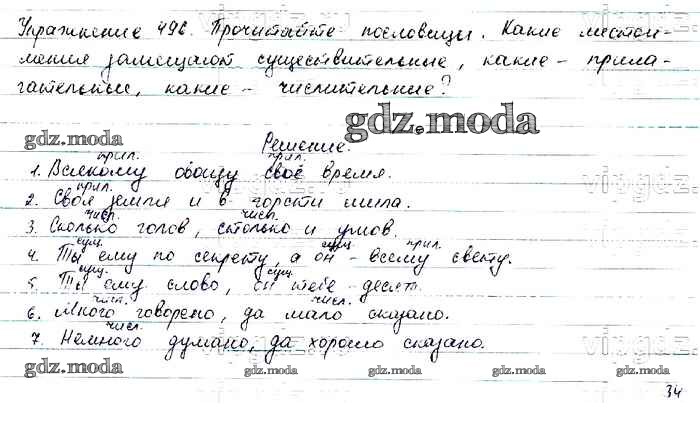 Упражнение 496. Прочитайте пословицы. Какие местои-
мения замещают существительные, какие - прила-
гательные, какие - числительные?
gdz.moda
gdz.moda
Решение.
прил. прил.
1. Всякому овощу своё время.
прил.
2. Своя земля и в горсти мила.
числ. числ.
3. Сколько голов, столько и умов.
сущ. сущ. прил.
4. Ты ему по секрету, а он - всему свету.
сущ. сущ.
5. Ты ему слово, он тебе десять.
числ. числ.
6. Много говорено, да мало сказано.
числ.
7. Немного думано, да хорошо сказано.
gdz.moda
gdz.moda gdz.moda gdz.moda gdz.moda
34